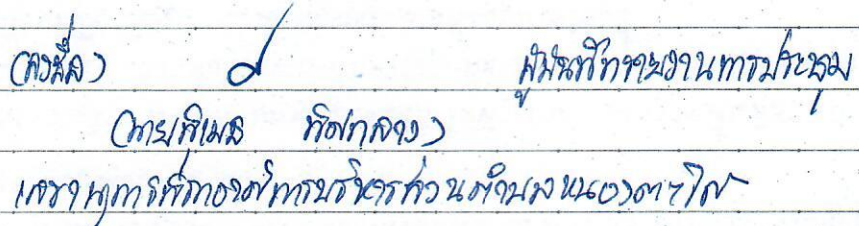 (ลงชื่อ) ผู้บันทึกรายงานการประชุม
(นายพิเมล ทิศกลาง)
เลขานุการสภาองค์การบริหารส่วนตำบลหนองตาไก้